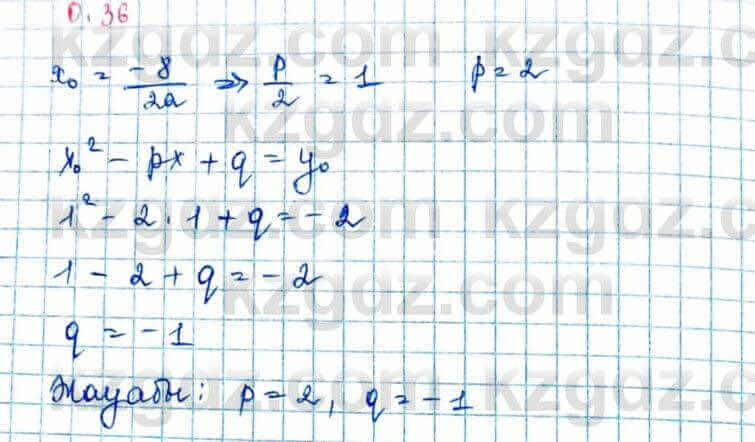 0.36
x₀ = -8/2a => p/2 = 1 p = 2
x₀² - px + q = y₀
1² - 2 · 1 + q = -2
1 - 2 + q = -2
q = -1
Жауабы: p = 2, q = -1
kzgdz.com
kzgdz.com
kzgdz.com
kzgdz.com
kzgdz.com